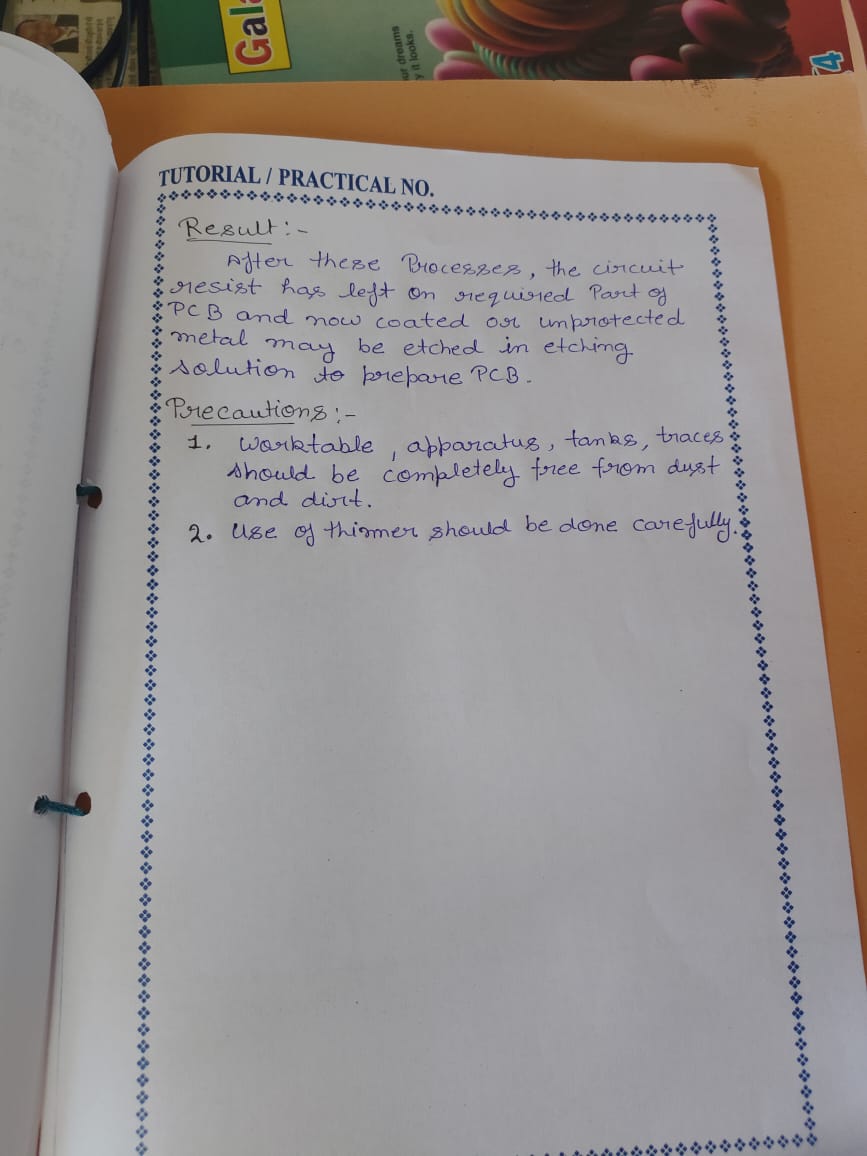 Gala
ur dreams
y it looks.
TUTORIAL / PRACTICAL NO.
Result :-
After these Processes, the circuit
resist has left on required Part of
PCB and now coated or unprotected
metal may be etched in etching
solution to prepare PCB.
Precautions :-
1. Worktable , apparatus, tanks, traces
should be completely free from dust
and dirt.
2. Use of thinner should be done carefully.